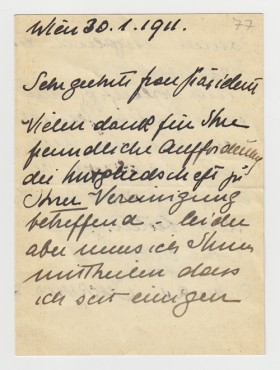 Wien 30.1.1911.
77
Sehr geehrte Frau Präsident
Vielen dank für Ihre
freundliche Aufforderung
die Mitgliedschaft zu
Ihrer Vereinigung
betreffend - leider
aber muss ich Ihnen
mittheilen dass
ich seit einigen